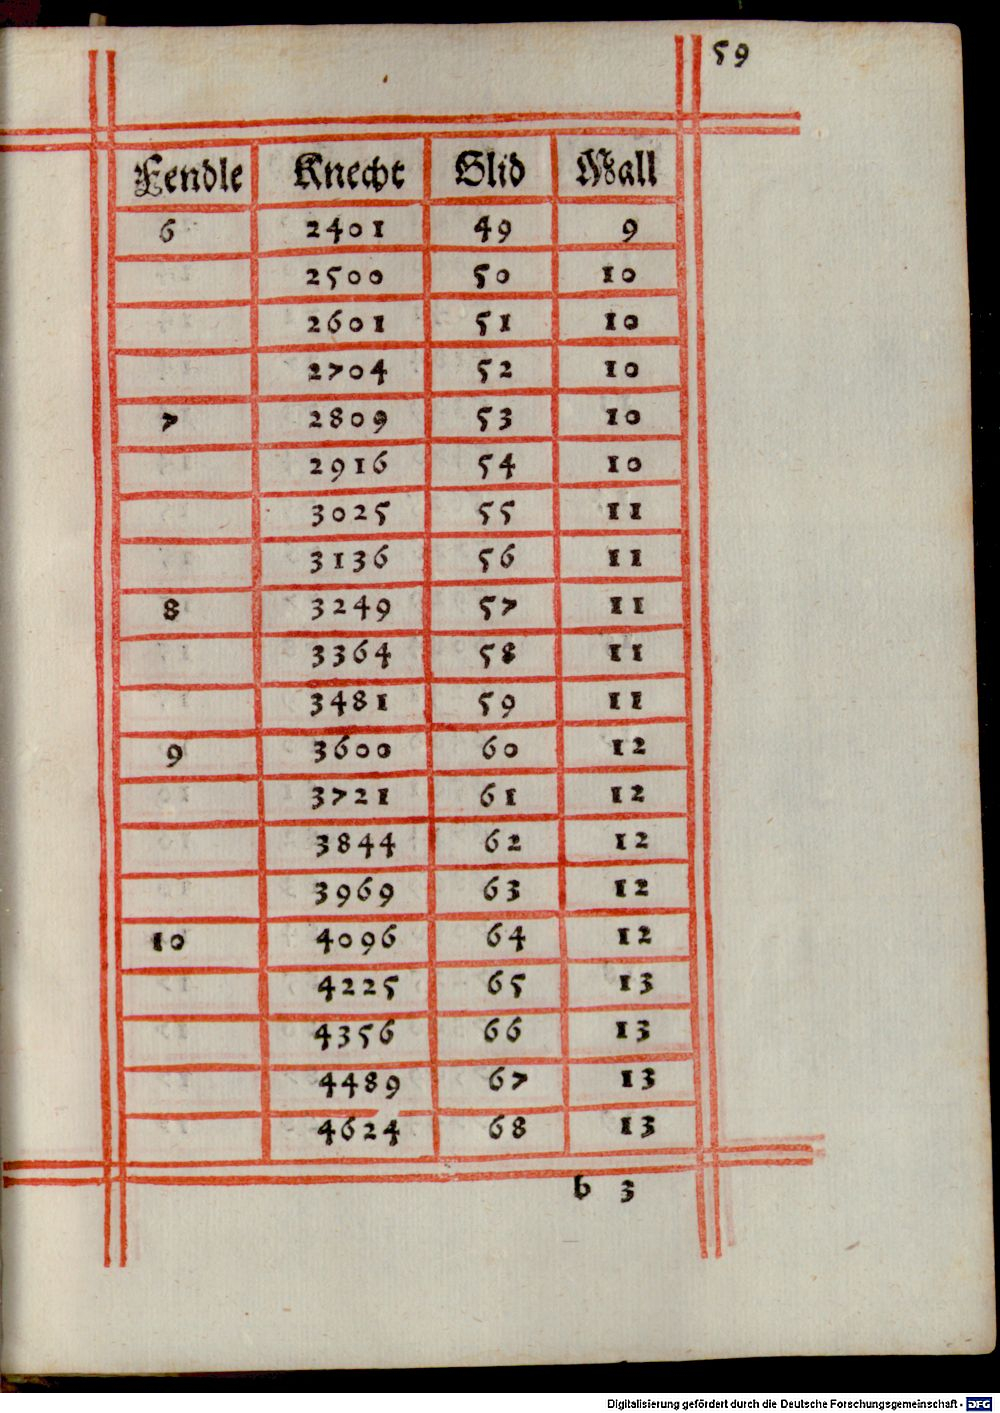 59
Fendle Knecht Glid Mall
6 2401 49 9
2500 50 10
2601 51 10
2704 52 10
7 2809 53 10
2916 54 10
3025 55 11
3136 56 11
8 3249 57 11
3364 58 11
3481 59 11
9 3600 60 12
3721 61 12
3844 62 12
3969 63 12
10 4096 64 12
4225 65 13
4356 66 13
4489 67 13
4624 68 13
b 3
Digitalisierung gefördert durch die Deutsche Forschungsgemeinschaft - DFG